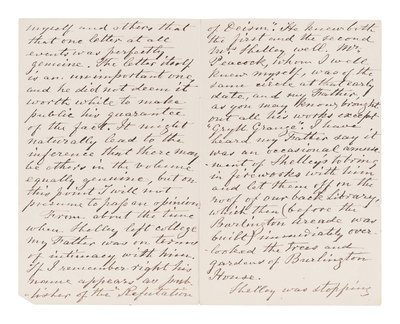 myself and others that
that one letter at all
events was perfectly
genuine. The letter itself
is an unimportant one,
and he did not deem it
worth while to make
public his guarantee
of the fact. It might
naturally lead to the
inference that there may
be others in the volume
equally genuine, but on
this point I will not
presume to pass an opinion.
From about the time
when Shelley left college
my Father was on terms
of intimacy with him.
If I remember right his
name appears as pub-
lisher of the "Refutation
of Deism". He knew both
the first and the second
Mrs Shelley well. Mr.
Peacock, whom I well
knew myself, was of the
same circle at that early
date, and my Father,
as you may know, brought
out all his works except
"Gryll Grange". I have
heard my Father say it
was an occasional amuse-
ment of Shelley's to bring
in fireworks with him
and let them off on the
roof of our back library,
which then (before the
Burlington Arcade was
built) immediately over-
looked the trees and
gardens of Burlington
House.
Shelley was stopping